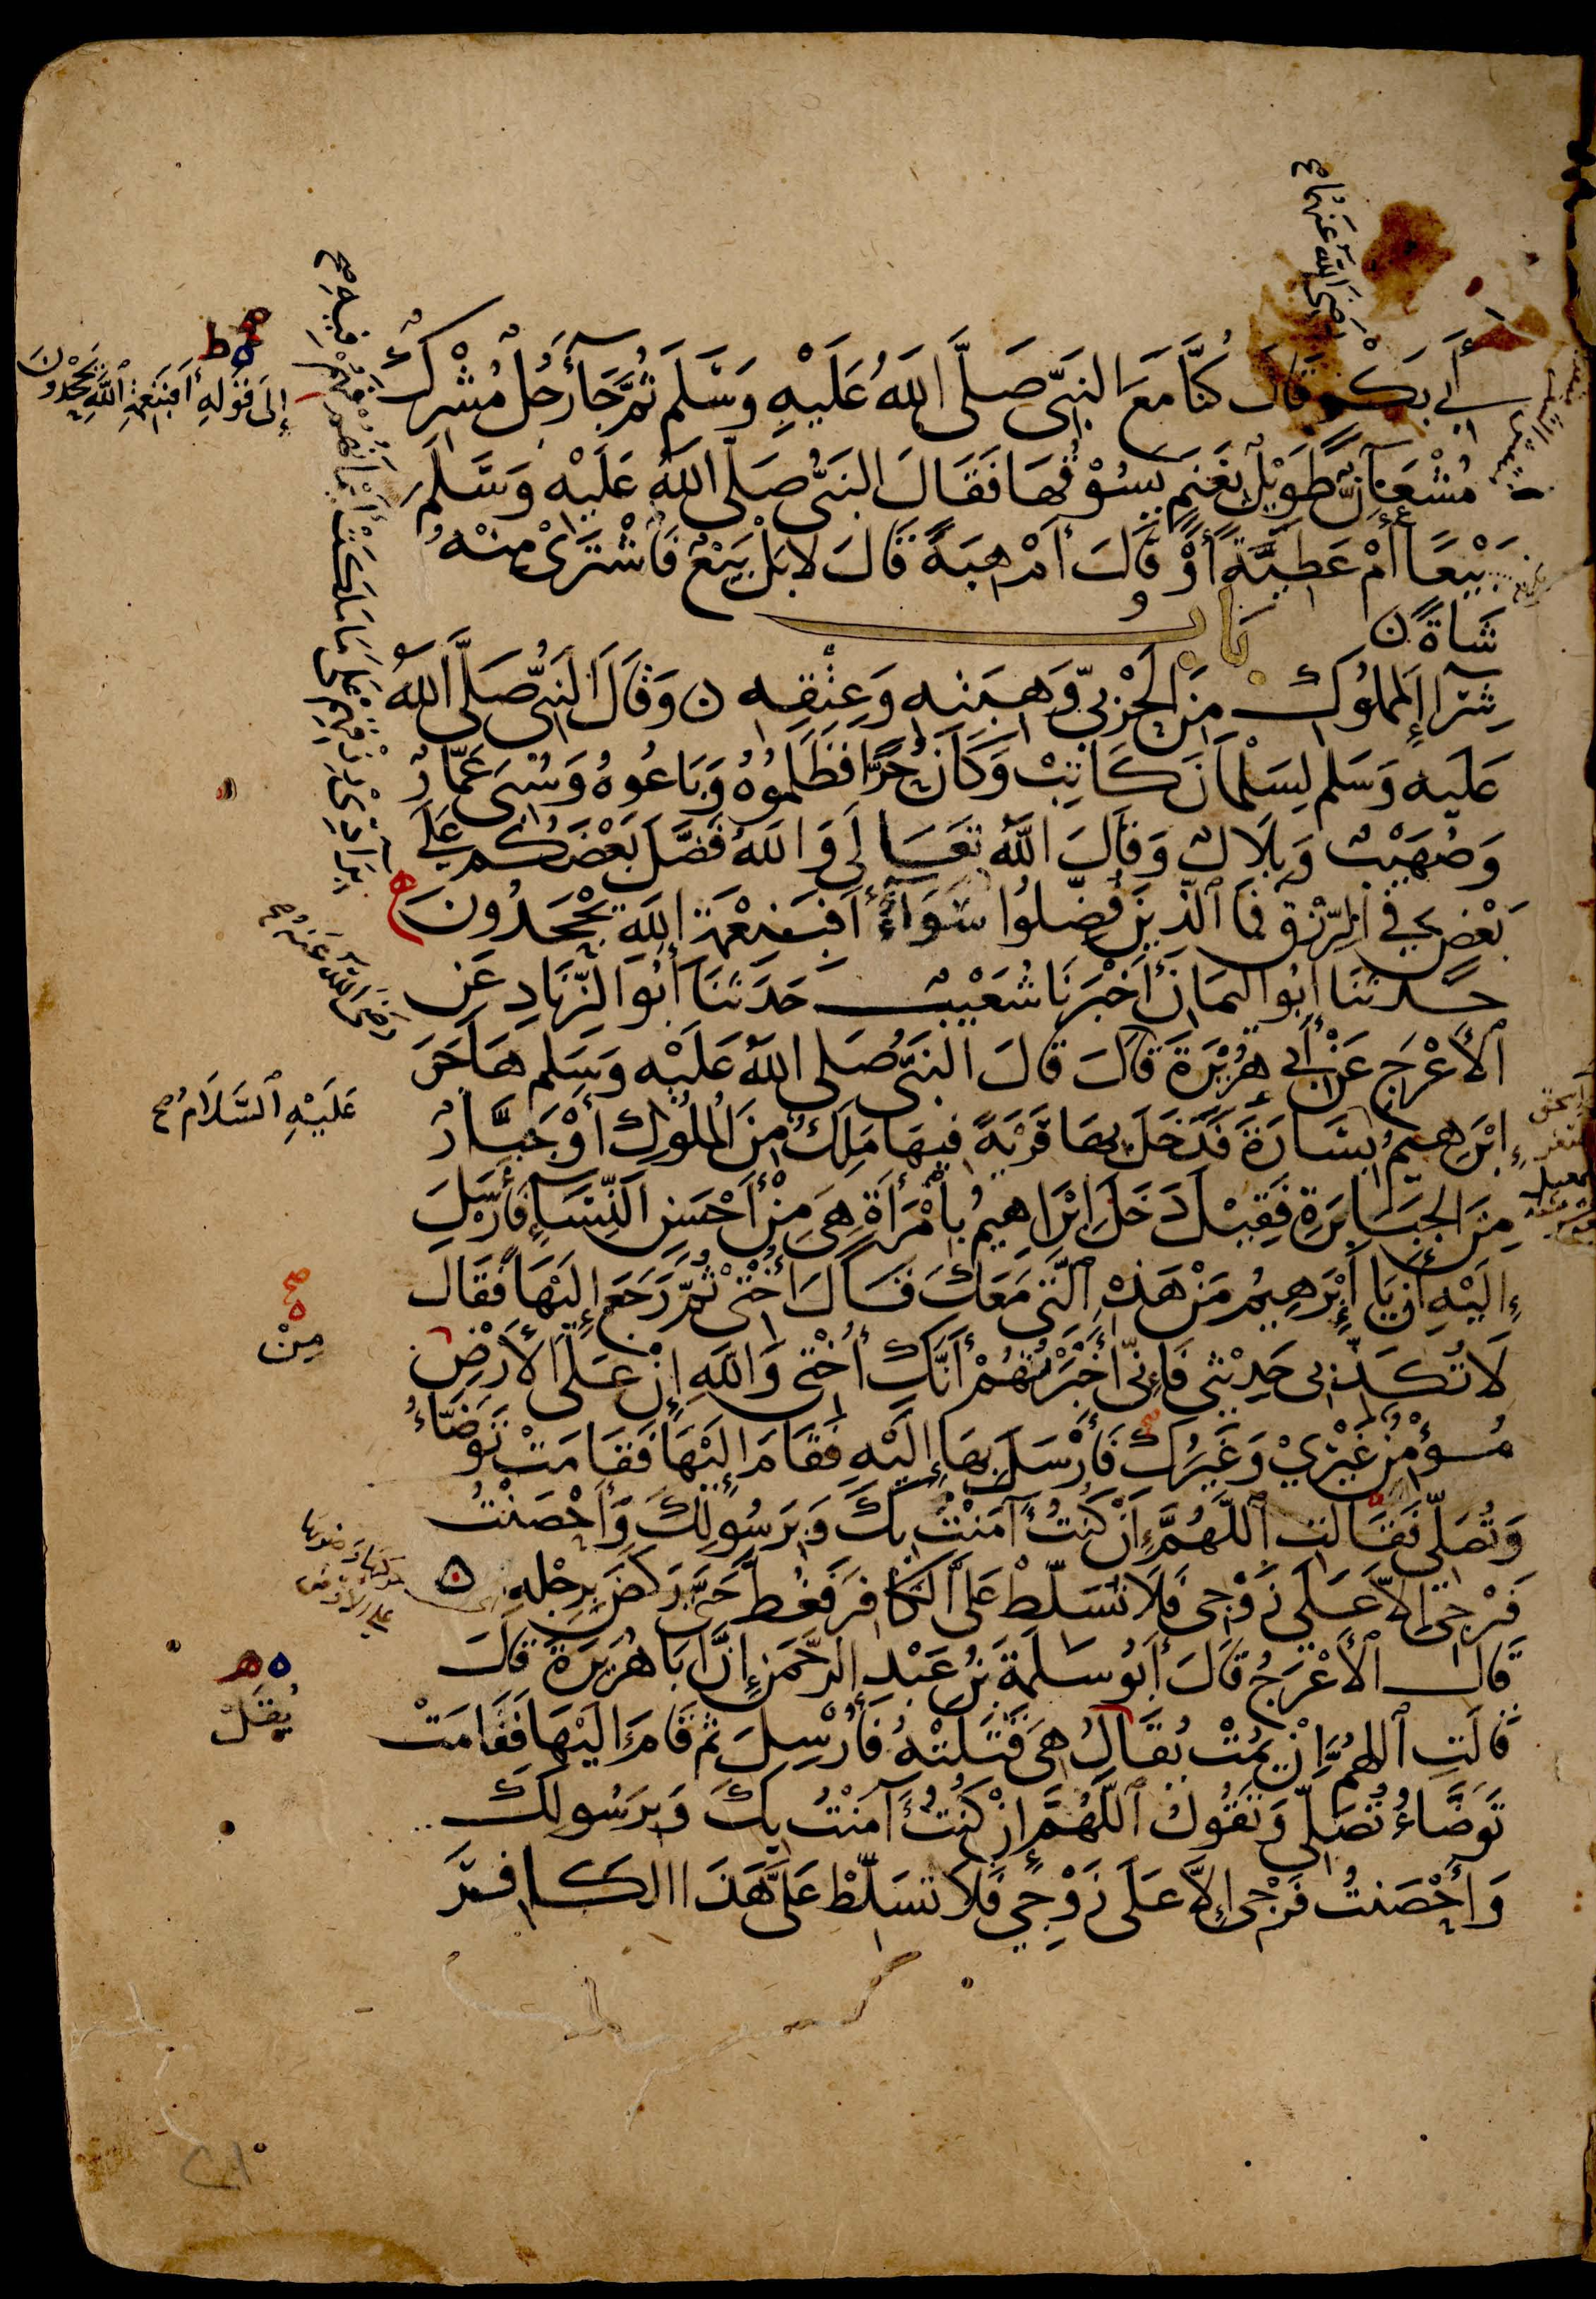 أَبِي بَكْرٍ قَالَ كُنَّا مَعَ النَّبِيِّ صَلَّى اللَّهُ عَلَيْهِ وَسَلَّمَ ثُمَّ جَآءَ رَجُلٌ مُشْرِكٌ
مُشْعَانٌّ طَوِيلٌ بِغَنَمٍ يَسُوْقُهَا فَقَالَ النَّبِيُّ صَلَّى اللَّهُ عَلَيْهِ وَسَلَّمَ
بَيْعًا أَمْ عَطِيَّةً أَوْ قَالَ أَمْ هِبَةً قَالَ لَا بَلْ بَيْعٌ فَاشْتَرَىٰ مِنْهُ
شَاةً ن
بَابُ
شِرَاءِ الْمَمْلُوكِ مِنَ الْحَرْبِيِّ وَهِبَتِهِ وَعِتْقِهِ ن وَقَالَ النَّبِيُّ صَلَّى اللَّهُ
عَلَيْهِ وَسَلَّم لِسَلْمَانَ كَاتِبْ وَكَانَ حُرًّا فَظَلَمُوهُ وَبَاعُوهُ وَسُبِيَ عَمَّارٌ
وَصُهَيْبٌ وَبِلَالٌ وَقَالَ اللَّهُ تَعَالَى وَاللَّهُ فَضَّلَ بَعْضَكُمْ عَلَى
بَعْضٍ فِي الرِّزْقِ فَمَا الَّذِينَ فُضِّلُوا سَوَآءٌ أَفَبِنِعْمَةِ اللَّهِ يَجْحَدُونَ
حَدَّثَنَا أَبُو الْيَمَانِ أَخْبَرَنَا شُعَيْبٌ حَدَّثَنَا أَبُو الزِّنَادِ عَنِ
الْأَعْرَجِ عَنْ أَبِي هُرَيْرَةَ قَالَ قَالَ النَّبِيُّ صَلَّى اللَّهُ عَلَيْهِ وَسَلَّم هَاجَرَ
إِبْرَهِيمُ بِسَارَةَ فَدَخَلَ بِهَا قَرْيَةً فِيهَا مَلِكٌ مِنَ الْمُلُوكِ أَوْ جَبَّارٌ
مِنَ الْجَبَابِرَةِ فَقِيلَ دَخَلَ إِبْرَاهِيمُ بِامْرَأَةٍ هِيَ مِنْ أَحْسَنِ النِّسَآءِ فَأَرْسَلَ
إِلَيْهِ أَنْ يَا إِبْرَهِيمُ مَنْ هَذِهِ الَّتِي مَعَكَ قَالَ أُخْتِي ثُمَّ رَجَعَ إِلَيْهَا فَقَالَ
لَا تُكَذِّبِي حَدِيْثِي فَإِنِّي أَخْبَرْتُهُمْ أَنَّكِ أُخْتِي وَاللَّهِ إِنْ عَلَى الْأَرْضِ
مُؤْمِنٌ غَيْرِيْ وَغَيْرُكِ فَأَرْسَلَ بِهَا إِلَيْهِ فَقَامَ إِلَيْهَا فَقَامَتْ تَوَضَّأُ
وَتُصَلِّي فَقَالَتِ اللَّهُمَّ إِنْ كُنْتُ آمَنْتُ بِكَ وَبِرَسُولِكَ وَأَحْصَنْتُ
فَرْجِي إِلَّا عَلَى زَوْجِي فَلَا تُسَلِّطْ عَلَيَّ الْكَافِرَ فَغُطَّ حَتَّى رَكَضَ بِرِجْلِهِ ن
قَالَ الْأَعْرَجُ قَالَ أَبُو سَلَمَةَ بْنُ عَبْدِ الرَّحْمَنِ إِنَّ أَبَا هُرَيْرَةَ قَالَ
قَالَتِ اللَّهُمَّ إِنْ يَمُتْ يُقَالُ هِيَ قَتَلَتْهُ فَأُرْسِلَ ثُمَّ قَامَ إِلَيْهَا فَقَامَتْ
تَوَضَّأُ تُصَلِّي وَتَقُولُ اللَّهُمَّ إِنْ كُنْتُ آمَنْتُ بِكَ وَبِرَسُولِكَ
وَأَحْصَنْتُ فَرْجِي إِلَّا عَلَى زَوْجِي فَلَا تُسَلِّطْ عَلَيَّ هَذَا الْكَافِرَ
رَضِيَ اللَّهُ عَنْهُمَا صح
إِلَى قَوْلِهِ أَفَبِنِعْمَةِ اللَّهِ يَجْحَدُونَ
بِرَادِّي رِزْقِهِمْ عَلَى مَا مَلَكَتْ أَيْمَانُهُمْ فَهُمْ فِيهِ صح
رَضِيَ اللَّهُ عَنْهُ صح
عَلَيْهِ السَّلَامُ صح
صح
مِنْ
على الأرض
يُقَلْ